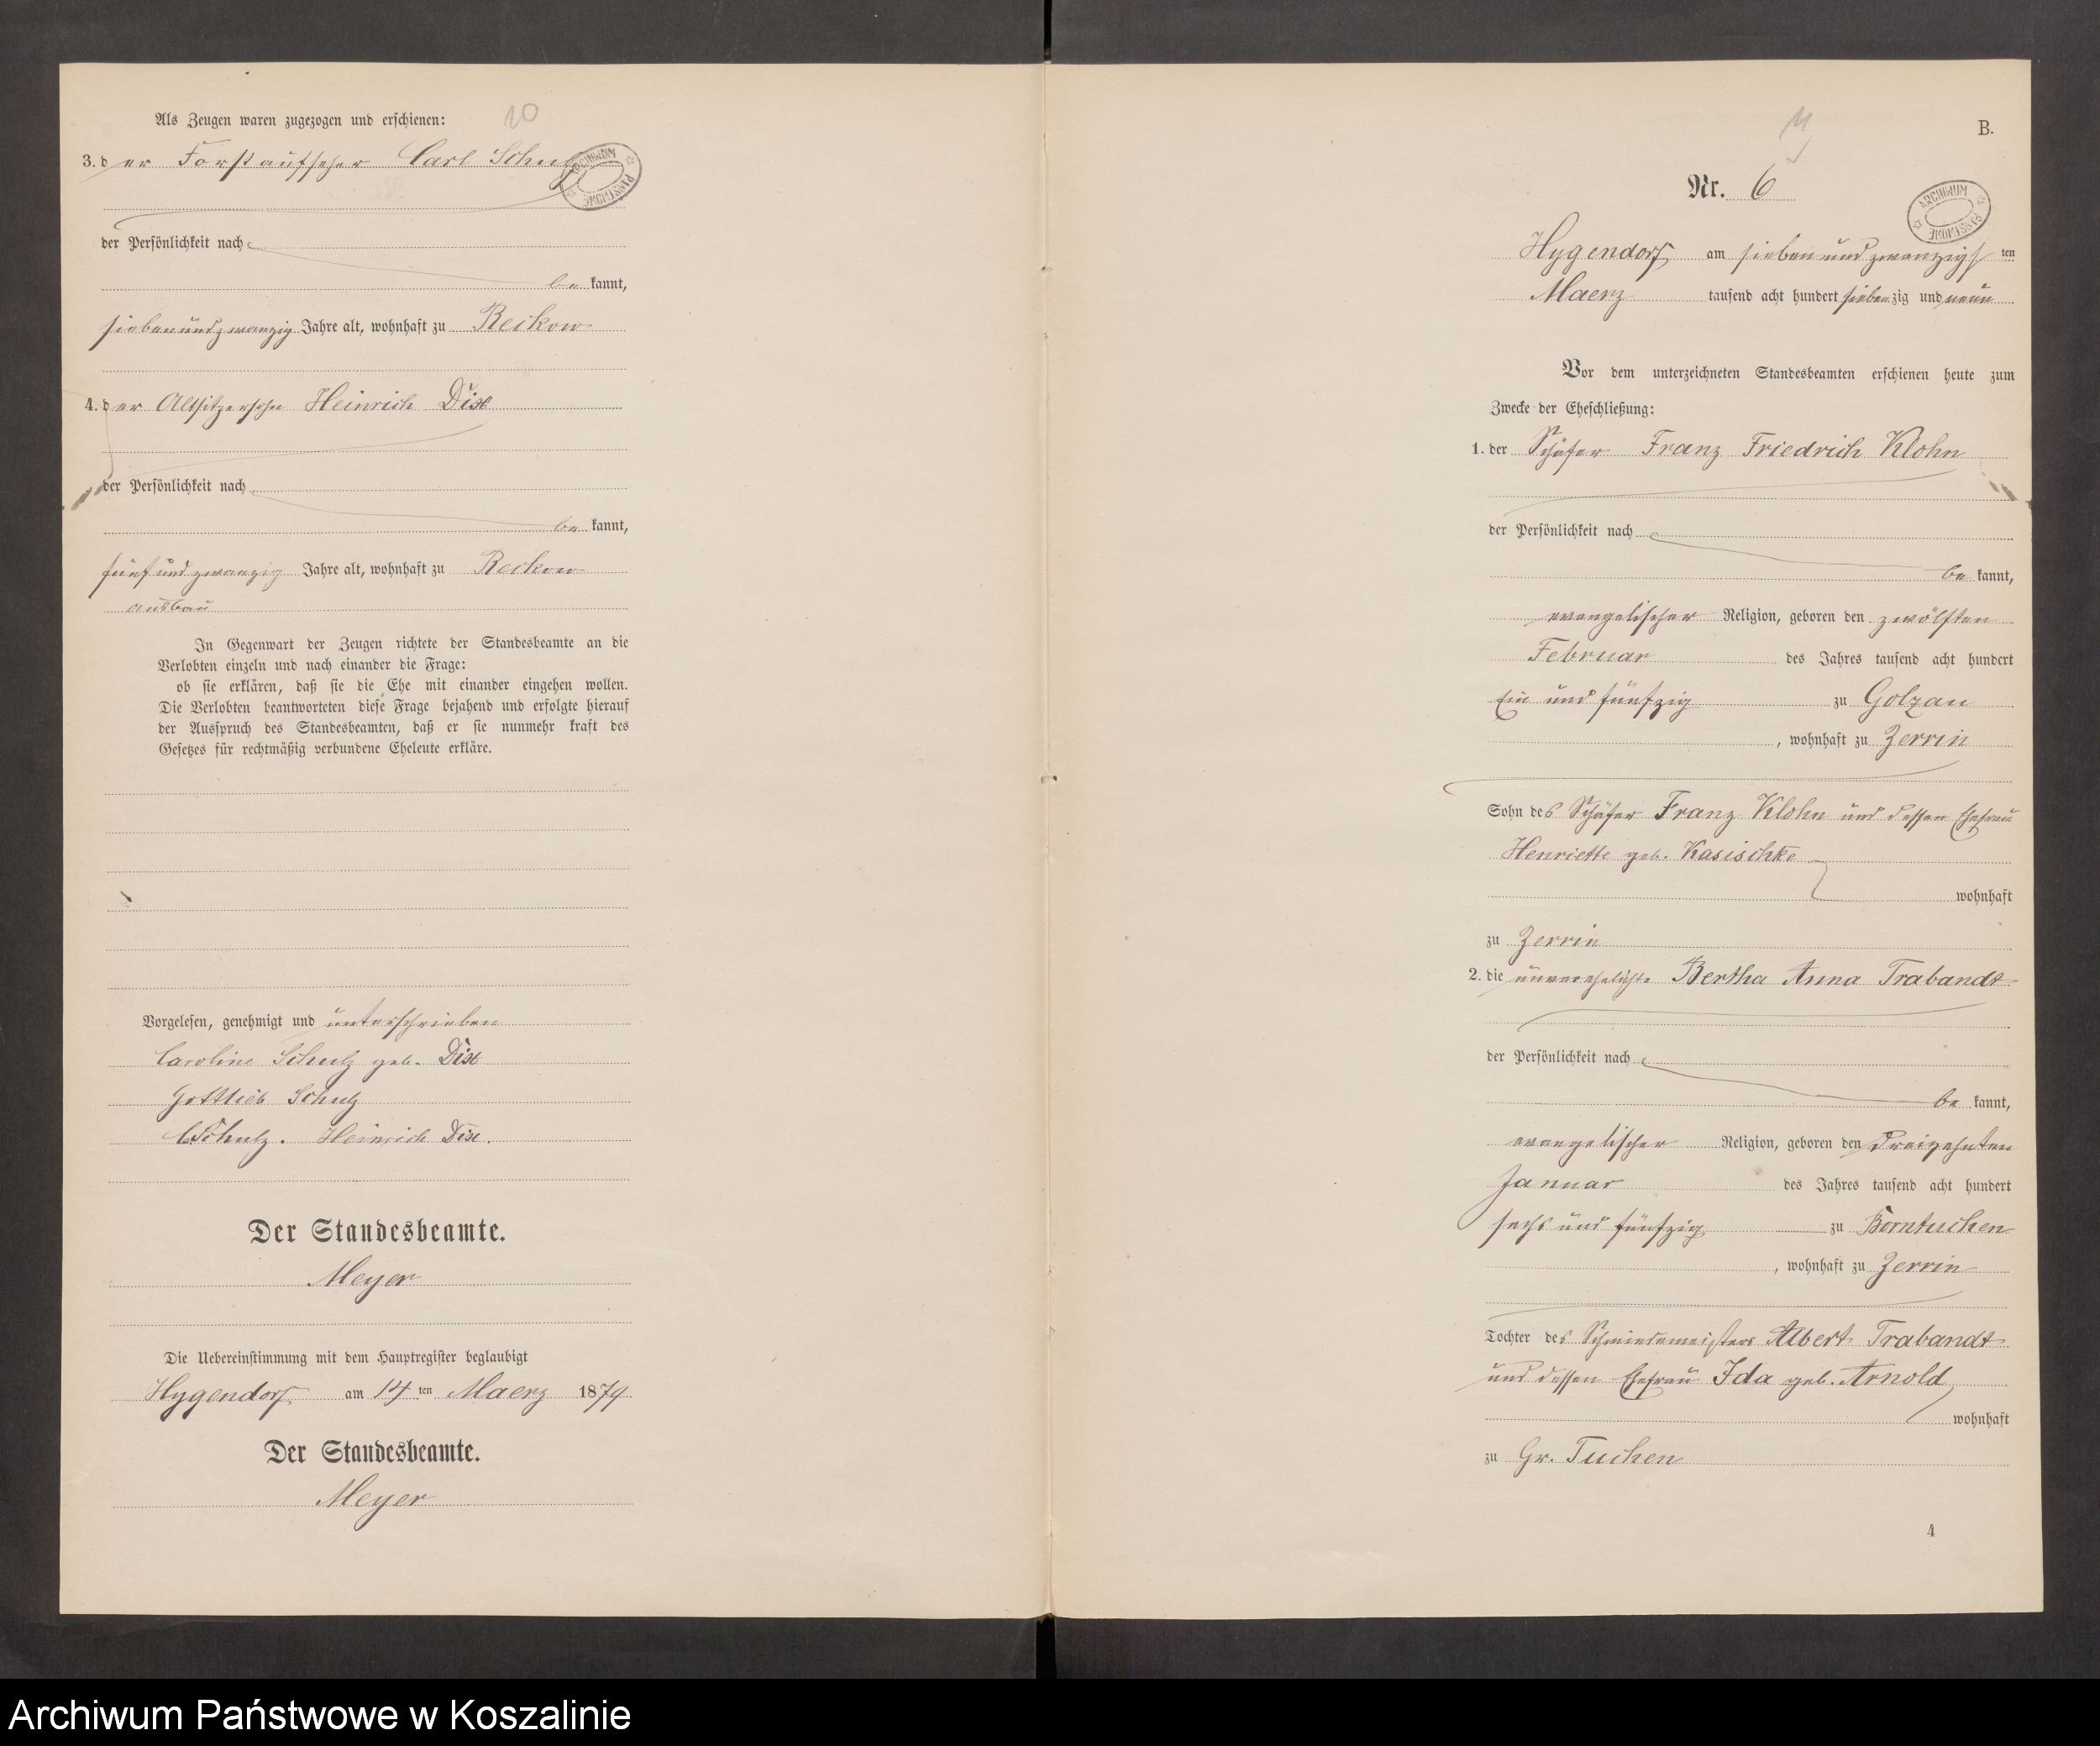 10
Als Zeugen waren zugezogen und erschienen:
3. der Forstaufseher Carl Schulz
ARCHIWUM PAŃSTWOWE
der Persönlichkeit nach
be kannt,
siebenundzwanzig Jahre alt, wohnhaft zu Reckow
4. der Altsitzersohn Heinrich
der Persönlichkeit nach
be kannt,
fünfundzwanzig Jahre alt, wohnhaft zu Reckow
ausbau
In Gegenwart der Zeugen richtete der Standesbeamte an die
Verlobten einzeln und nach einander die Frage:
ob sie erklären, daß sie die Ehe mit einander eingehen wollen.
Die Verlobten beantworteten diese Frage bejahend und erfolgte hierauf
der Ausspruch des Standesbeamten, daß er sie nunmehr kraft des
Gesetzes für rechtmäßig verbundene Eheleute erkläre.
Vorgelesen, genehmigt und unterschrieben
Caroline Schulz geb.
Gottlieb Schulz
C Schulz. Heinrich
Der Standesbeamte.
Meyer
Die Uebereinstimmung mit dem Hauptregister beglaubigt
Hygendorf am 14 ten Maerz 1879.
Der Standesbeamte.
Meyer
11
B.
Nr. 6
ARCHIWUM PAŃSTWOWE
Hygendorf am siebenundzwanzigs ten
Maerz tausend acht hundert siebenzig und neun
Vor dem unterzeichneten Standesbeamten erschienen heute zum
Zwecke der Eheschließung:
1. der Schäfer Franz Friedrich Klohn
der Persönlichkeit nach
be kannt,
evangelischer Religion, geboren den zwölften
Februar des Jahres tausend acht hundert
Ein und fünfzig zu Golzau
, wohnhaft zu Zerrin
Sohn des Schäfer Franz Klohn und dessen Ehefrau
Henriette geb. Kasischke
wohnhaft
zu Zerrin
2. die unverehelichte Bertha Anna Trabandt
der Persönlichkeit nach
be kannt,
evangelischer Religion, geboren den dreizehnten
Januar des Jahres tausend acht hundert
sechs und fünfzig zu Borntuchen
, wohnhaft zu Zerrin
Tochter des Schmiedemeisters Albert Trabandt
und dessen Ehefrau Ida geb. Arnold
wohnhaft
zu Gr. Tuchen
4
Archiwum Państwowe w Koszalinie